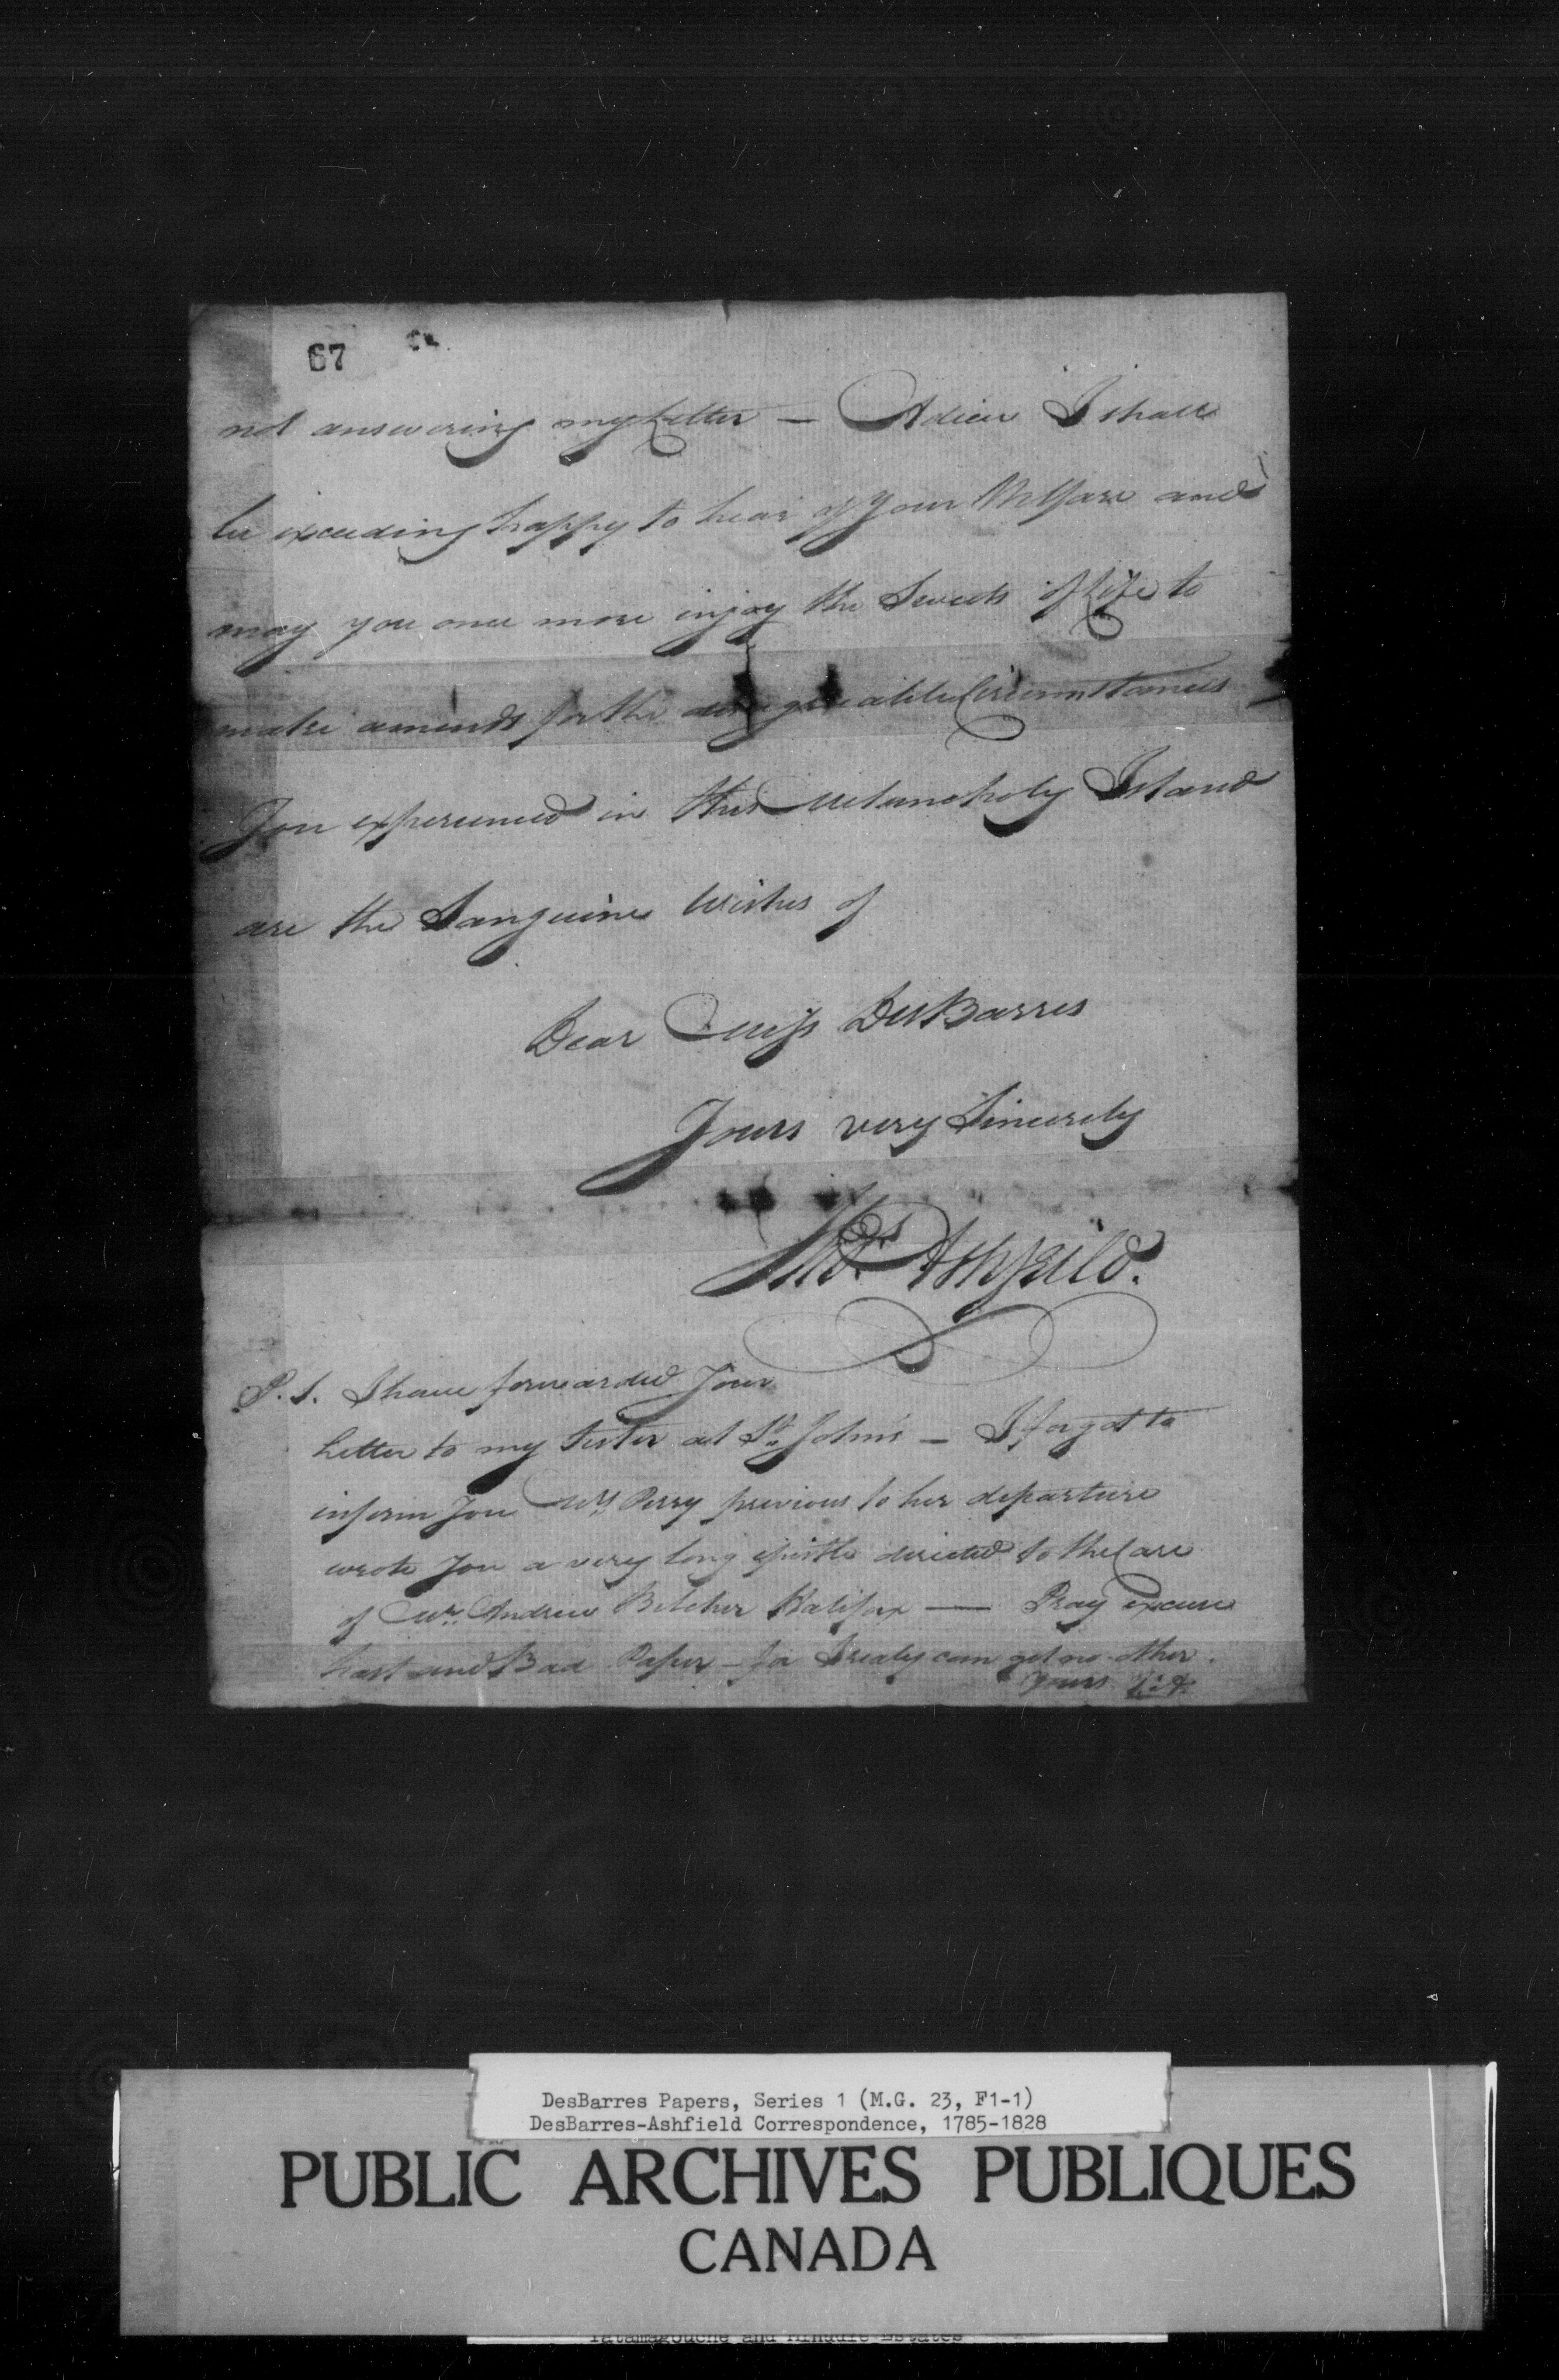 67
not answering my Letter — Adieu I shall
be exceeding happy to hear of Your Wellfare and
may you once more injoy the Sweets of Life to
make amends for the disagreeable Circumstances
You experienced in this Melancholy Island
are the Sanguine Wishes of
Dear Miss DesBarres
Yours very Sincerely
Ashfeild.
P.S. I have forwarded Your
Letter to my Sister at St. John's — I forgot to
inform You Mrs. Perry previous to her departure
wrote You a very long epistle directed to the Care
of Mr. Andrew Belcher Halifax — Pray excuse
hast and Bad Paper – for I realy can get no other.
Yours
DesBarres Papers, Series 1 (M.G. 23, F1-1)
DesBarres-Ashfield Correspondence, 1785-1828
PUBLIC ARCHIVES PUBLIQUES
CANADA
Tatamagouche and Minudie Estates